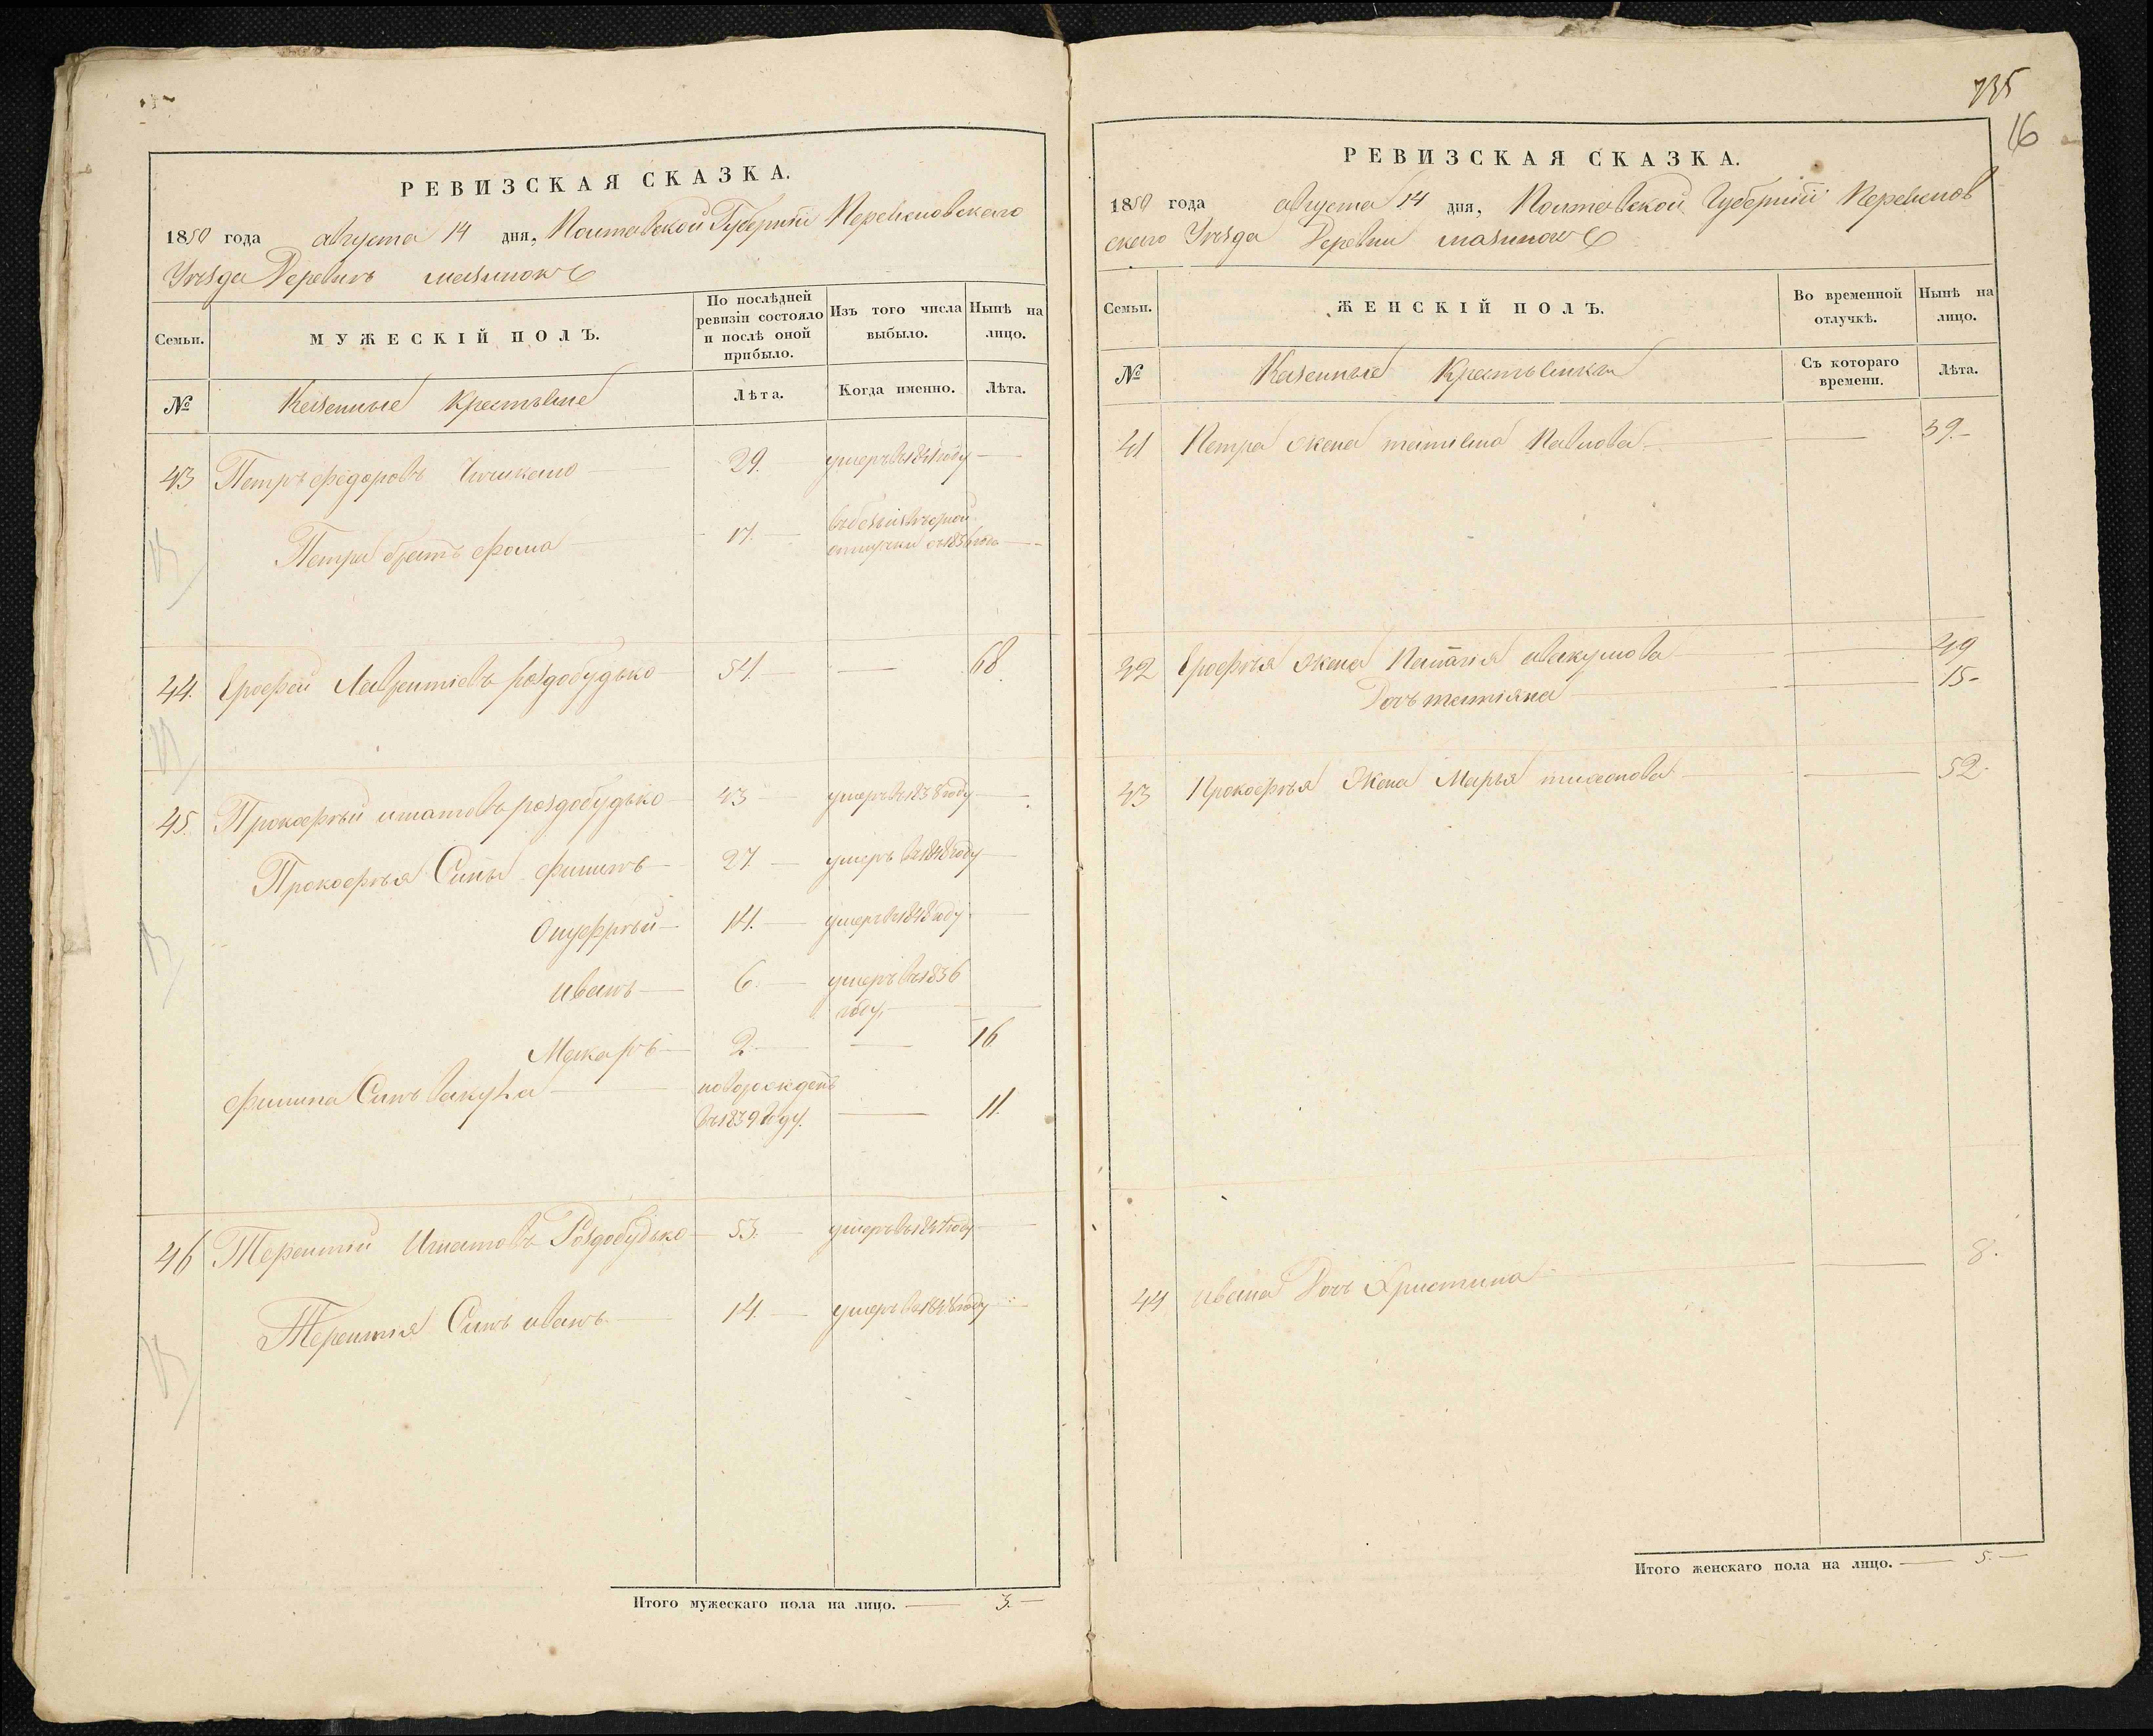 РЕВИЗСКАЯ СКАЗКА.
1850 года августа 14 дня, Полтавской Губернiи Переясловского
Уѣзда Деревнѣ
Семьи.
МУЖЕСКІЙ ПОЛЪ.
По послѣдней ревизіи состояло и послѣ оной прибыло.
Изъ того числа выбыло.
Нынѣ на лицо.
№
Казенные Крестьяне
Лѣта.
Когда именно.
Лѣта.
43 Петръ федоровъ 29. умеръ въ 1841 году
Петра братъ фома 17. отлучки съ 1836 года
44. Ерофей Лаврентіевъ роздобудько 54. 68.
45. Прокофѣй игнатовъ роздобудько 43 умеръ въ 1838 году
Прокофѣя Сины филипъ 27. умеръ въ 1848 году
Онуфрѣй 14. умеръ въ 1848 году
иванъ 6. умеръ въ 1836
году
Макаръ 2. 16
филипа Синъ вакула новорожденъ
въ 1839 году. 11.
46 Терентій Игнатовъ Роздобудько 53. умеръ въ 1847 году
Терентія Синъ иванъ 14. умеръ въ 1848 году
Итого мужескаго пола на лицо. 3.
735
16
РЕВИЗСКАЯ СКАЗКА.
1850 года августа 14 дня, Полтавской Губерніи Переяслов
ского Уѣзда Деревни
Семьи.
ЖЕНСКІЙ ПОЛЪ.
Во временной отлучкѣ.
Нынѣ на лицо.
№
Казенные Крестьянки
Съ котораго времени.
Лѣта.
41 Петра жена Павлова 39.
42 Ерофѣя жена Пелагія авакумова 49
Дочь татіяна 15
43 Прокофѣя Жена Марья тихонова 52
44 ивана Дочь Христина 8.
Итого женскаго пола на лицо. 5.